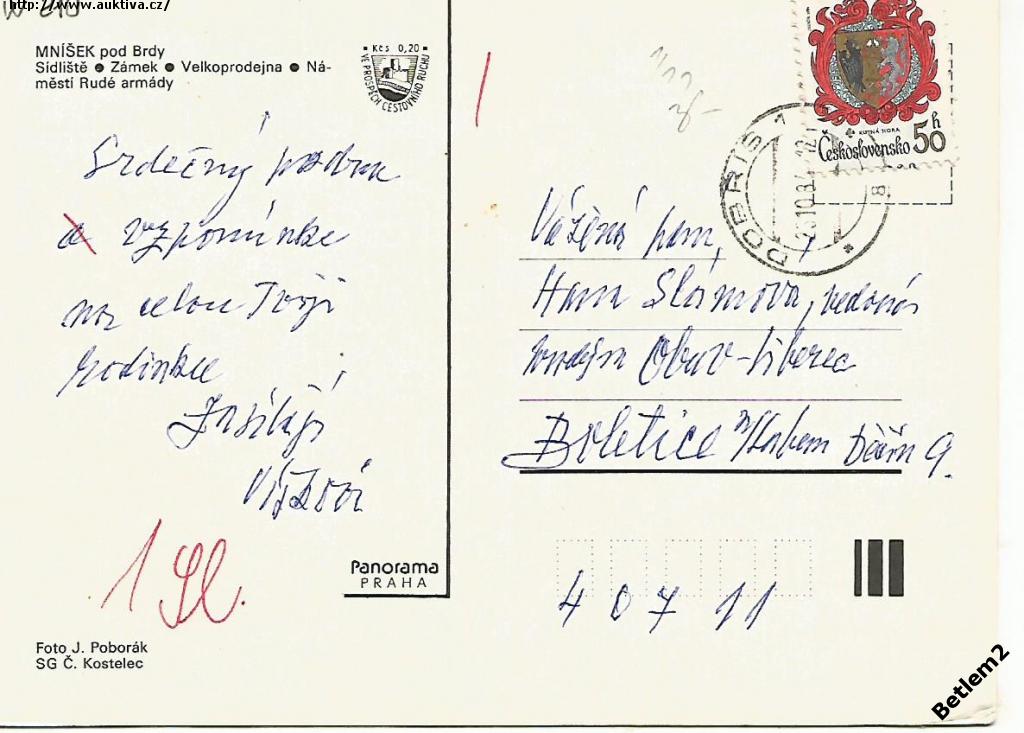 http://www.auktiva.cz/
MNÍŠEK pod Brdy
Sídliště ● Zámek ● Velkoprodejna ● Ná-
městí Rudé armády
Kčs 0,20
VE PROSPĚCH CESTOVNÍHO RUCHU
Srdečný pozdrav
a vzpomínku
na celou Tvoji
rodinku
zasílají
1 Sl.
Panorama
PRAHA
Foto J. Poborák
SG Č. Kostelec
KUTNÁ HORA
Československo 50 h
DOBŘÍŠ 1
Vážená paní,
Hana Slámova, vedoucí
prodejen Obuv-Liberec
Boletice n/Labem Děčín 9.
407 11
Betlem2